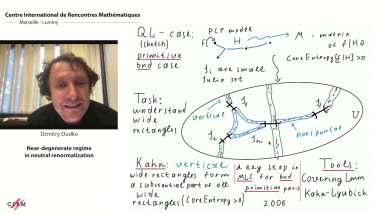 Centre International de Rencontres Mathématiques
Marseille - Luminy
Dzmitry Dudko
Near-degenerate regime
in neutral renormalization
CIRM
QL - case:
(sketch)
primitive
bnd case
PCF model
F
H
M - matrix
of f|H
Core Entropy(F|H)>0
are small
Julia set
Task:
understand
wide
rectangles
vertical
horizontal
U
Kahn: vertical
wide rectangles form
a substantial part of all
wide
rectangles (Core Entropy>0)
A key step in
MLC for bnd
primitive
2006
Tools:
Covering Lmm
Kahn-Lyubich